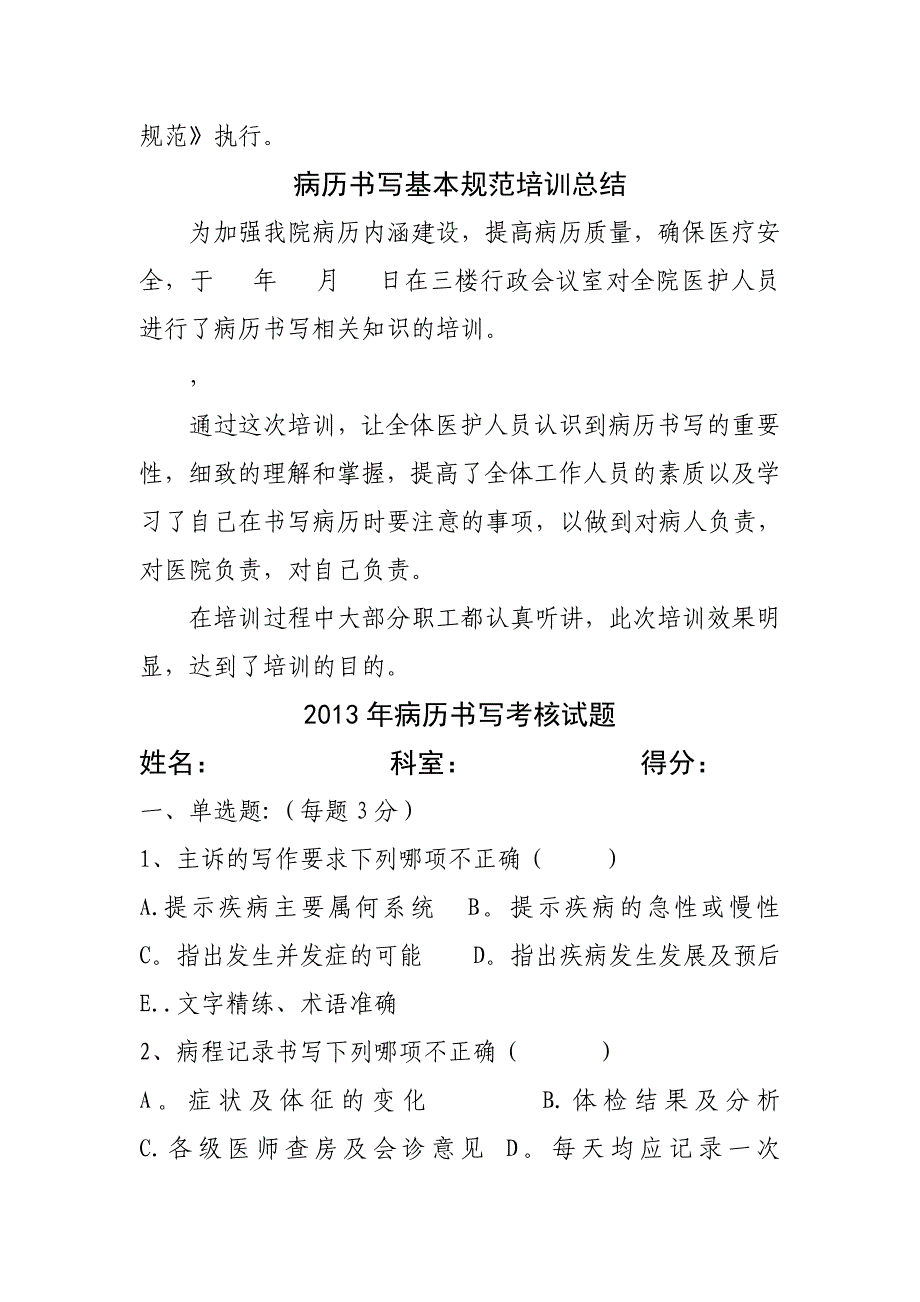 规范》执行。
病历书写基本规范培训总结
为加强我院病历内涵建设，提高病历质量，确保医疗安
全，于 年 月 日在三楼行政会议室对全院医护人员
进行了病历书写相关知识的培训。
，
通过这次培训，让全体医护人员认识到病历书写的重要
性，细致的理解和掌握，提高了全体工作人员的素质以及学
习了自己在书写病历时要注意的事项，以做到对病人负责，
对医院负责，对自己负责。
在培训过程中大部分职工都认真听讲，此次培训效果明
显，达到了培训的目的。
2013年病历书写考核试题
姓名： 科室： 得分：
一、单选题:（每题3分）
1、主诉的写作要求下列哪项不正确（ ）
A.提示疾病主要属何系统 B。提示疾病的急性或慢性
C。指出发生并发症的可能 D。指出疾病发生发展及预后
E..文字精练、术语准确
2、病程记录书写下列哪项不正确（ ）
A。症状及体征的变化 B.体检结果及分析
C.各级医师查房及会诊意见 D。每天均应记录一次